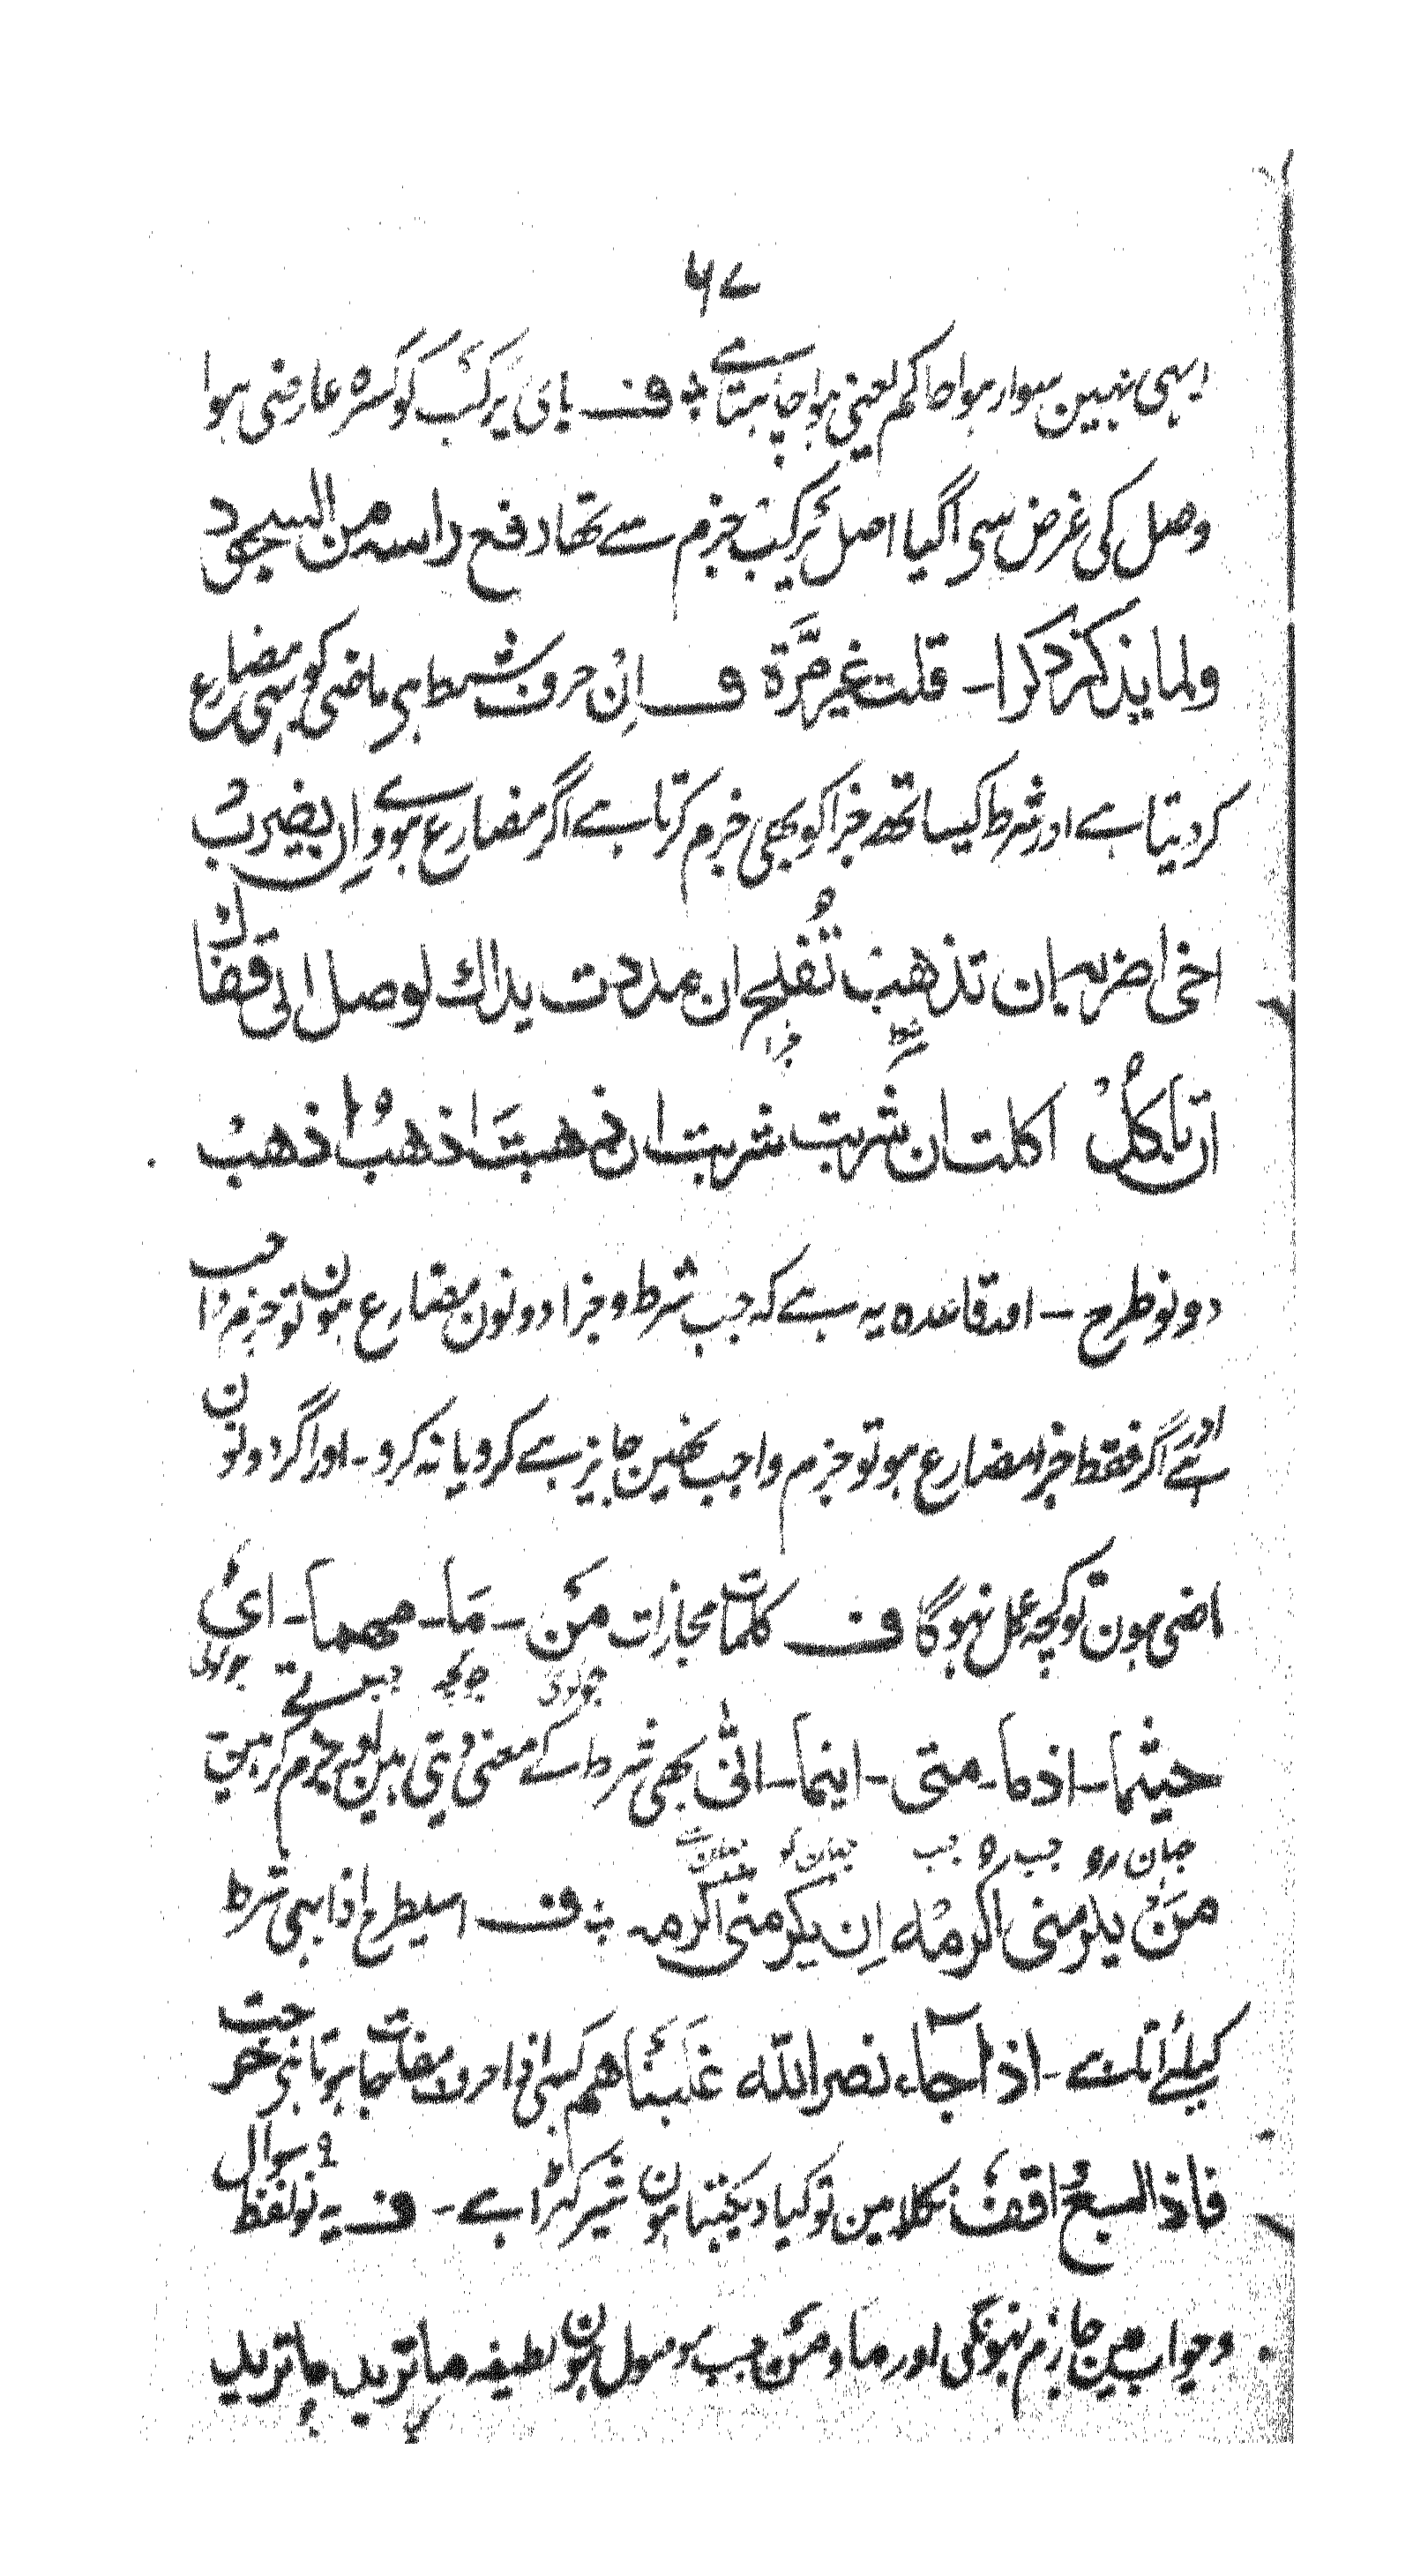 ۶۷
ابہی نہین سوار ہوا حاکم یعنی ہوا چاہتا ہے ؞ ف باى یَرکَبْ کو کسرہ عارضی ہوا
وصل کی غرض سی آگیا اصل یَرکبْ جزم سے تھا رفع راسه من السجود
ولما یذکر ذکرا - قلت غیر مَرَّة ف اِنْ حرف شرط ہی ماضی کو بہی مضارع
کر دیتا ہے اور شرط کیساتھ جزا کو بھی جزم کرتا ہے اگر مضارع ہووے اِن یضربْ
اخی اضربه ان تذهبْ تُفلحْ ان مددت یداك لوصل الی قفاك
شرط جزا
ان تاکلْ اکلت ان شربت شربت ان ذهبتَ اذهبْ اذهبُ
دونو طرح - اور قاعدہ یہ ہے کہ جب شرط و جزا دونون مضارع ہون تو جزم واجب
ہے اور اگر فقط جزا مضارع ہو تو جزم واجب نہین جایز ہے کرو یا نہ کرو - اور اگر دونون
ماضی ہون تو کچھ عمل نہوگا ف کلمات مجازات مَنْ - مَا - مهما - ایُّ
جو کوئی جو کچھ جو کوئی
حیثما - اذما - متی - اینما - انّٰی بھی شرط کے معنی دیتی ہین اور جزم کرتے ہین
جہان جب جب جہان
مَنْ یکرمنی اکرمْه اِن یکرمنی اکرمه ؞ ف اسیطرح اذا بہی شرط
کیلئے آتا ہے - اذا جاء نصر الله غلبْناهم کبہی اذا حرف مفاجات ہوتا ہی خرجت
فاذا السبعُ اقفٌ نکلا مین تو کیا دیکہتا ہون شیر کھڑا ہے - ف یہ نو لفظ سوال
و جواب مین جازم نہونگی اور ما و مَنْ جب موصول ہون لطیفہ ما ترید ما ترید